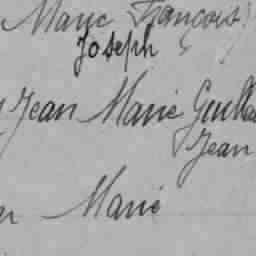 Marie François
Joseph
Jean Marie Guilla
Jean
Marie